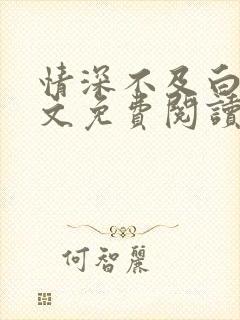 情深不及白
文免費閱讀
何智麗